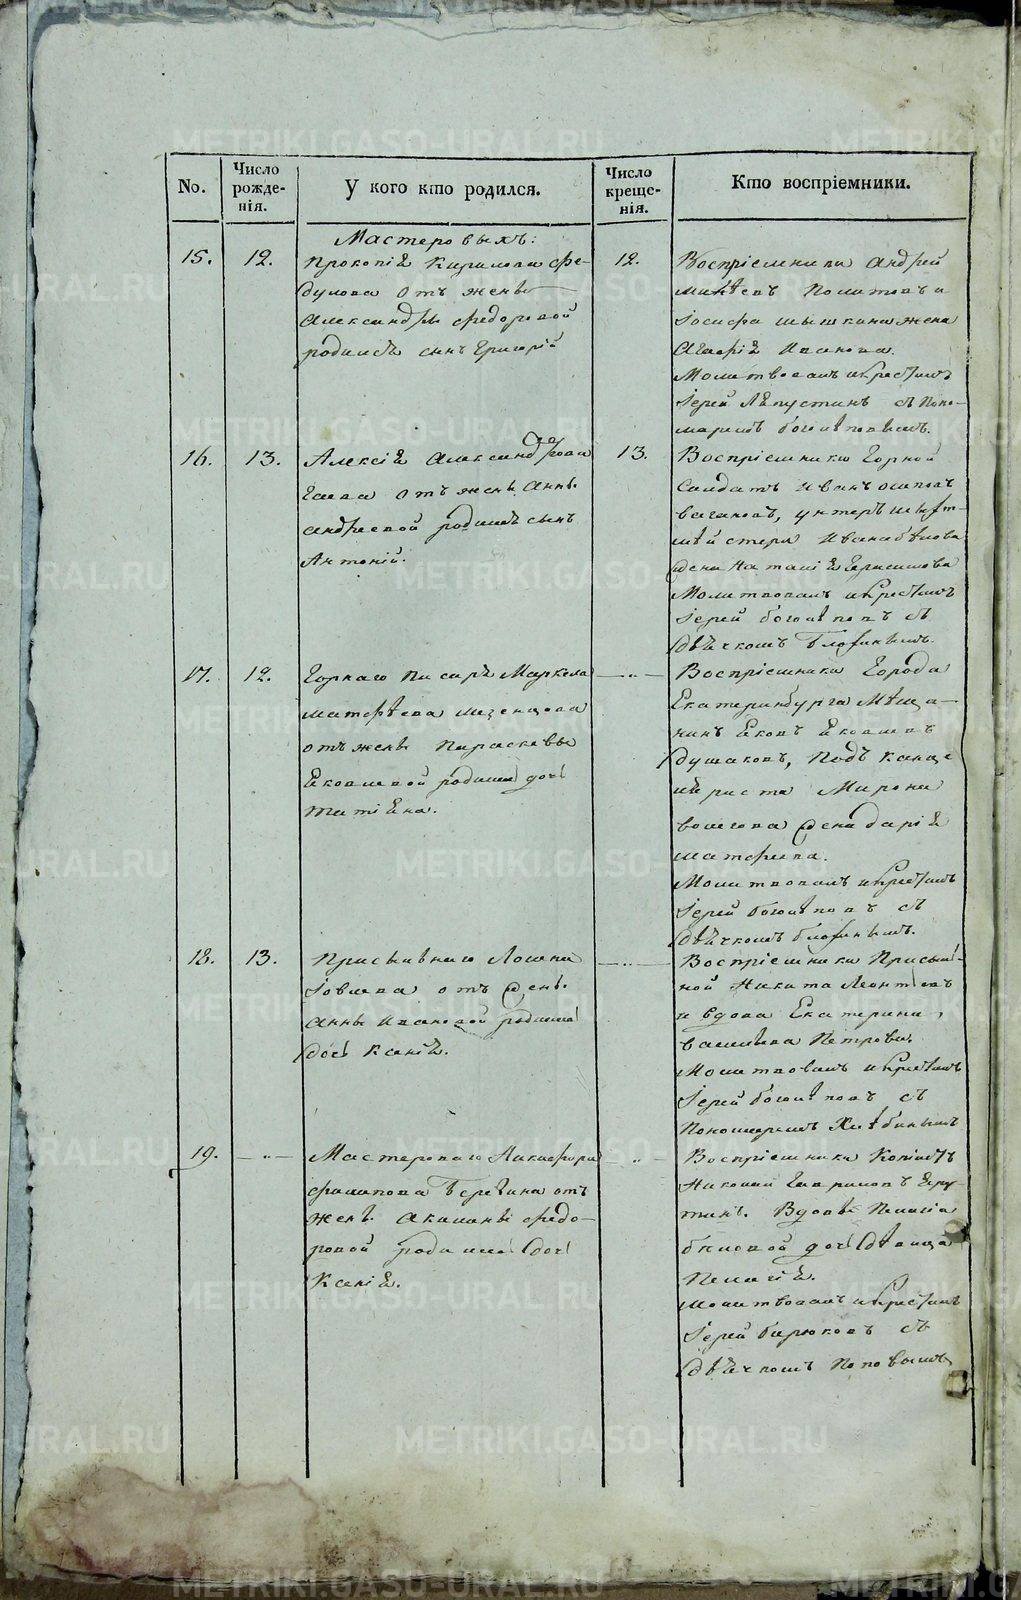 METRIKI.GASO-URAL.RU
No.
Число рожде-нія.
У кого кто родился.
Число креще-нія.
Кто воспріемники.
Мастеровыхъ:
15.
12.
Прокопія Кирилова Фе-
дулова отъ жены
Александры Федоровой
родился сынъ Григорій
12.
Воспріемники Андрей
Политовъ и
Іосифа Мышкина жена
Агафія Иванова.
Молитвовалъ и крестилъ
Іерей Лѣпустинъ съ Поно-
маремъ Боголѣповымъ.
16.
13.
Алексія Александрова
отъ жены Анны
Андреевой родился сынъ
Антоній.
13.
Воспріемники Горной
Солдатъ Иванъ Осиповъ
Вагановъ, унтеръ шихт-
мейстера Ивана Бѣлова
жена Наталія Герасимова
Молитвовалъ и крестилъ
Іерей Боголѣповъ съ
Дьячкомъ
17.
12.
Горнаго Писаря Маркела
Матфѣева Мезенцова
отъ жены Параскевы
Яковлевой родилась дочь
Татіяна.
Воспріемники Города
Екатеринбурга Мѣща-
нинъ Яковъ Яковлевъ
Душаковъ, Подъ канце
ляриста Мирона
Волегова жена Дарія
Матфѣева.
Молитвовалъ и крестилъ
Іерей Боголѣповъ съ
Дьячкомъ
18.
13.
Присыльнаго
Іовлева отъ жены
Анны Ивановой родилась
дочь Ксенія.
Воспріемники Присыль-
ной Никита Леонтьевъ
и вдова Екатерина
Петрова.
Молитвовалъ и крестилъ
Іерей Боголѣповъ съ
Пономаремъ Хлѣбинымъ
19.
Мастероваго Никифора
Филипова Березина отъ
жены Акилины Федо-
ровой родилась дочь
Ксенія.
Воспріемники Копіистъ
Николай Гавриловъ
Вдовы Пелагіи
Быковой дочь Дѣвица
Пелагія.
Молитвовалъ и крестилъ
Іерей Бирюковъ съ
Дьячкомъ Поповымъ